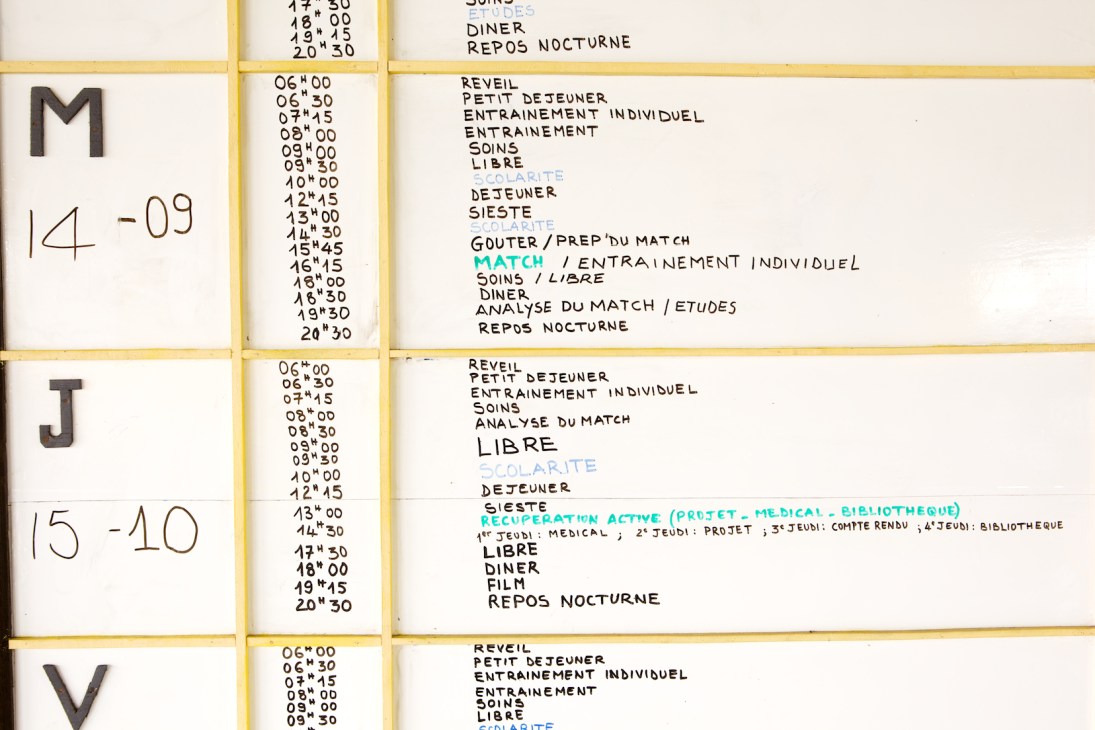 17H30 SOINS
18H00 ETUDES
19H15 DINER
20H30 REPOS NOCTURNE
M
14-09
06H00 REVEIL
06H30 PETIT DEJEUNER
07H15 ENTRAINEMENT INDIVIDUEL
08H00 ENTRAINEMENT
09H00 SOINS
09H30 LIBRE
10H00 SCOLARITE
12H15 DEJEUNER
13H00 SIESTE
14H30 SCOLARITE
15H45 GOUTER / PREP' DU MATCH
16H15 MATCH / ENTRAINEMENT INDIVIDUEL
18H00 SOINS / LIBRE
18H30 DINER
19H30 ANALYSE DU MATCH / ETUDES
20H30 REPOS NOCTURNE
J
15-10
06H00 REVEIL
06H30 PETIT DEJEUNER
07H15 ENTRAINEMENT INDIVIDUEL
08H00 SOINS
08H30 ANALYSE DU MATCH
09H00 LIBRE
09H30
10H00 SCOLARITE
12H15 DEJEUNER
13H00 SIESTE
14H30 RECUPERATION ACTIVE (PROJET - MEDICAL - BIBLIOTHEQUE)
1er JEUDI : MEDICAL ; 2e JEUDI : PROJET ; 3e JEUDI : COMPTE RENDU ; 4e JEUDI : BIBLIOTHEQUE
17H30 LIBRE
18H00 DINER
19H15 FILM
20H30 REPOS NOCTURNE
V
06H00 REVEIL
06H30 PETIT DEJEUNER
07H15 ENTRAINEMENT INDIVIDUEL
08H00 ENTRAINEMENT
09H00 SOINS
09H30 LIBRE
SCOLARITE